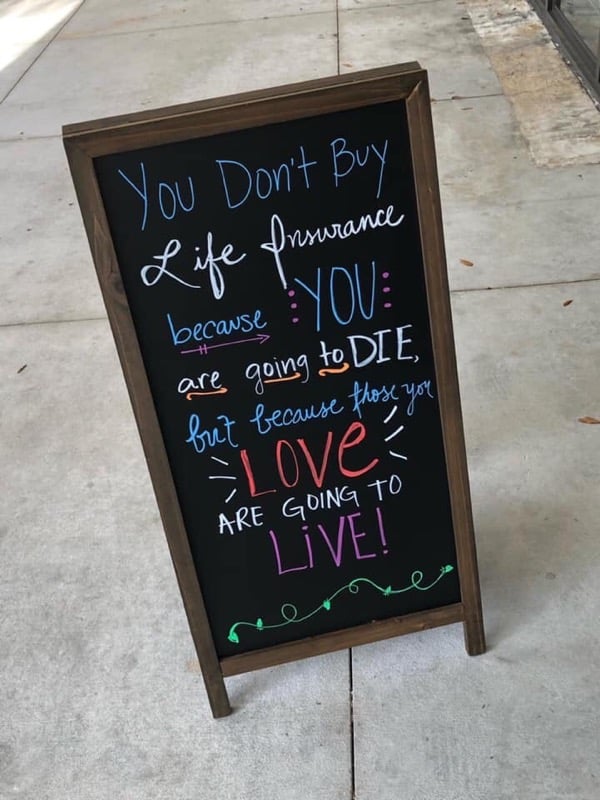 You Don't Buy
Life Insurance
because YOU
are going to DIE,
but because those you
LOVe
ARE GOING TO
LiVE!